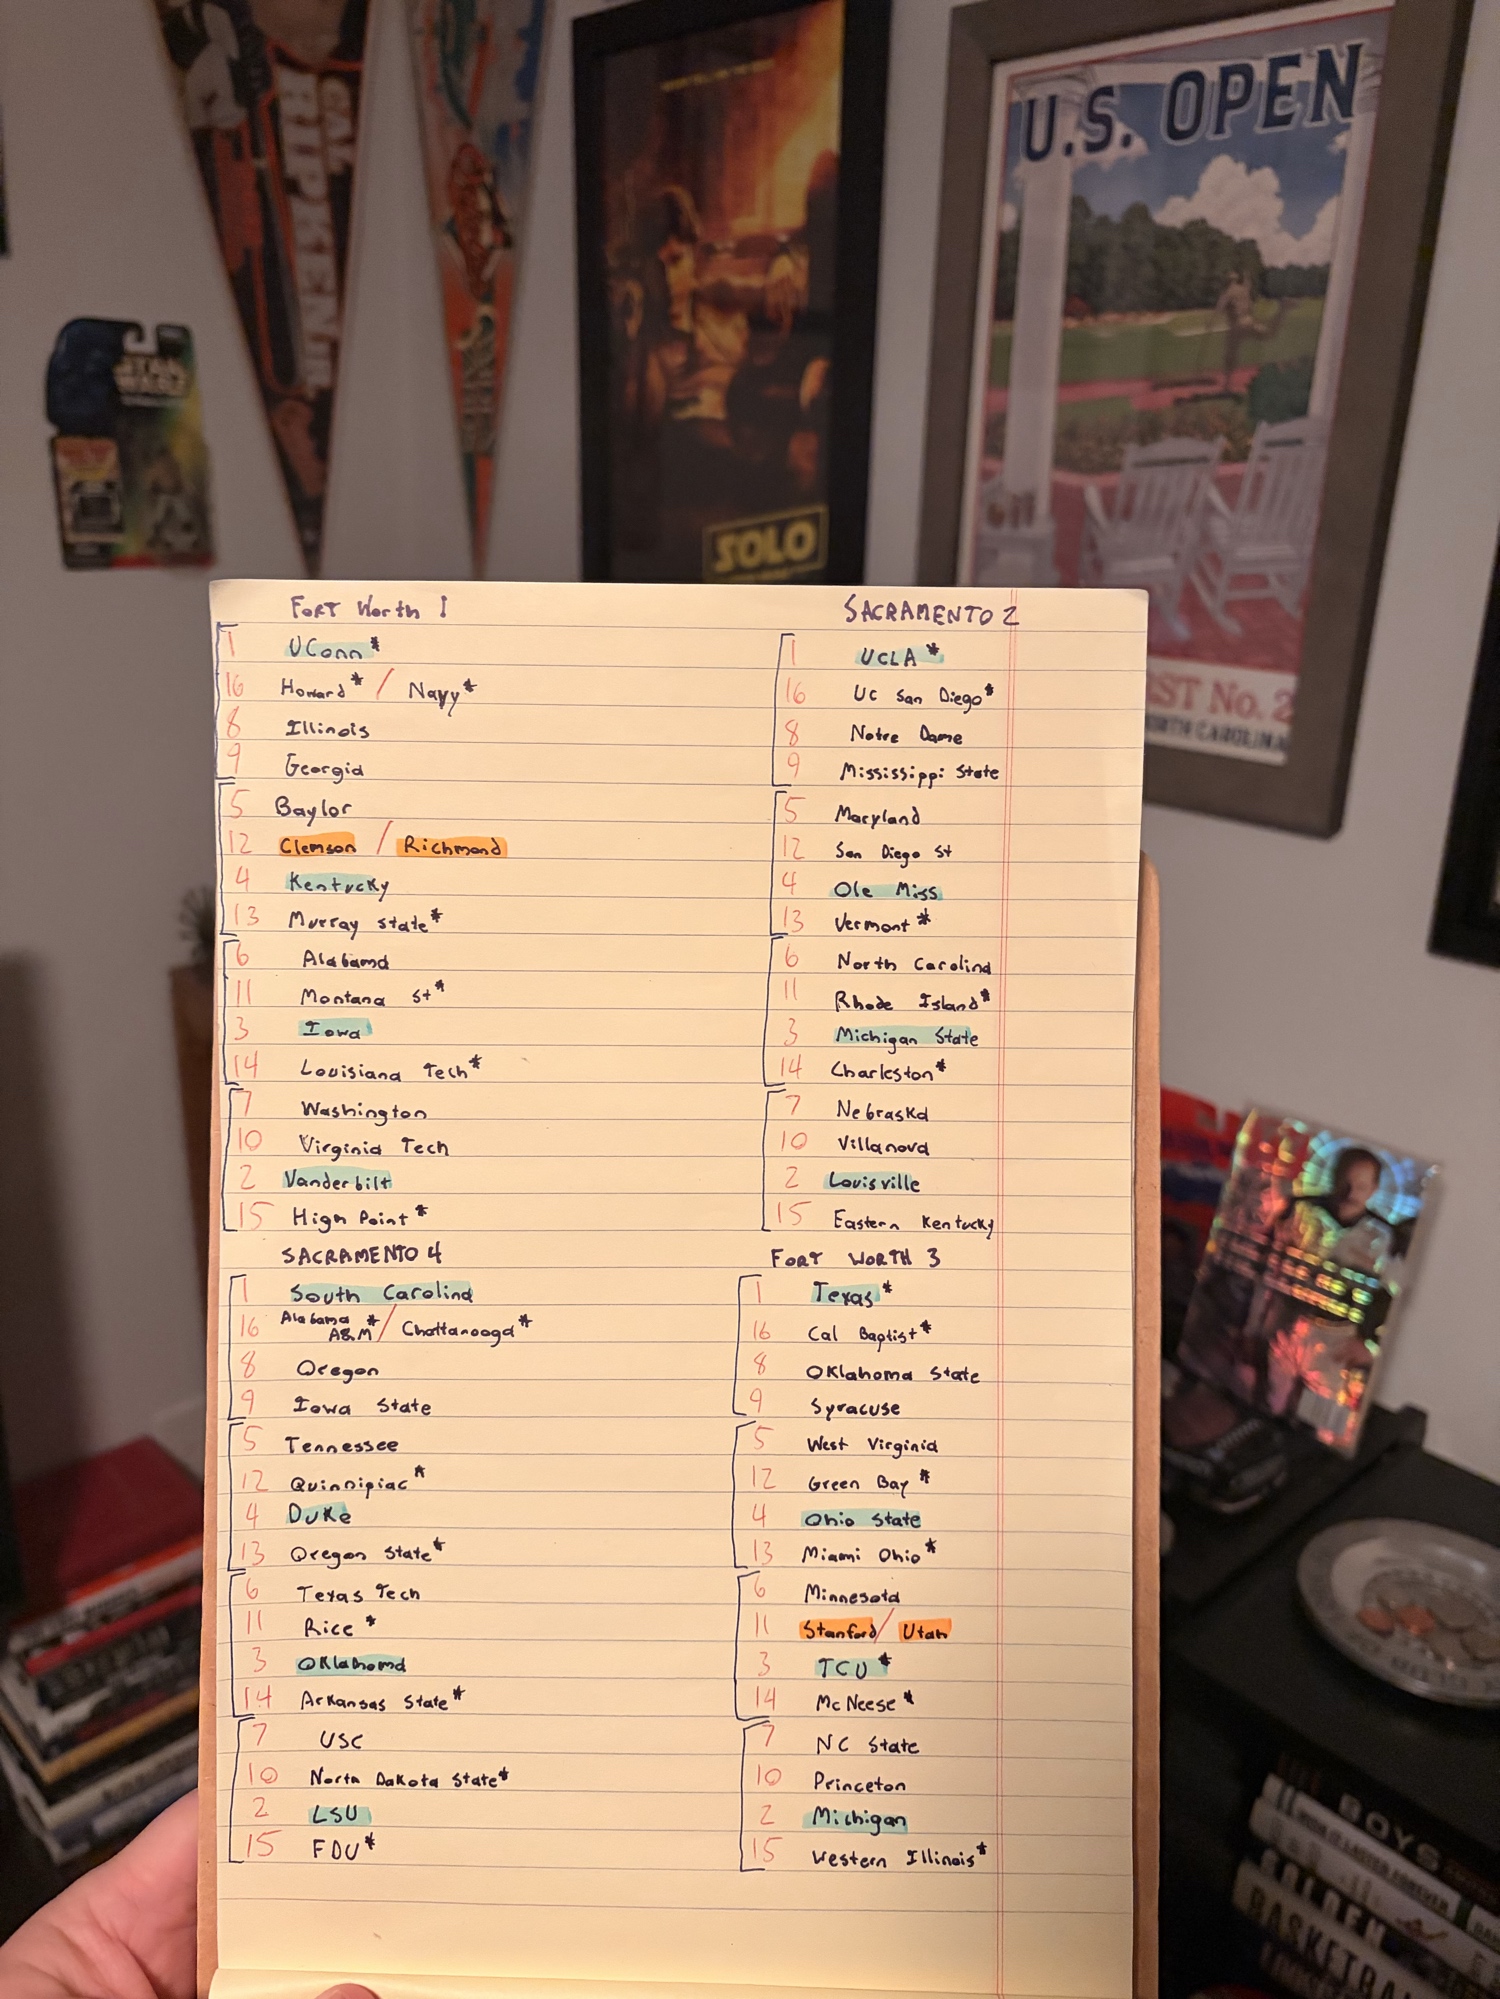 CAL RIPKEN JR
STAR WARS
SOLO
U.S. OPEN
Fort Worth 1
1 UConn*
16 Howard* / Navy*
8 Illinois
9 Georgia
5 Baylor
12 Clemson / Richmond
4 Kentucky
13 Murray State*
6 Alabama
11 Montana St*
3 Iowa
14 Louisiana Tech*
7 Washington
10 Virginia Tech
2 Vanderbilt
15 High Point*
SACRAMENTO 4
1 South Carolina
16 Alabama A&M* / Chattanooga*
8 Oregon
9 Iowa State
5 Tennessee
12 Quinnipiac*
4 Duke
13 Oregon State*
6 Texas Tech
11 Rice*
3 Oklahoma
14 Arkansas State*
7 USC
10 North Dakota State*
2 LSU
15 FDU*
SACRAMENTO 2
1 UCLA*
16 UC San Diego*
8 Notre Dame
9 Mississippi State
5 Maryland
12 San Diego St
4 Ole Miss
13 Vermont*
6 North Carolina
11 Rhode Island*
3 Michigan State
14 Charleston*
7 Nebraska
10 Villanova
2 Louisville
15 Eastern Kentucky
FORT WORTH 3
1 Texas*
16 Cal Baptist*
8 Oklahoma State
9 Syracuse
5 West Virginia
12 Green Bay*
4 Ohio State
13 Miami Ohio*
6 Minnesota
11 Stanford / Utah
3 TCU*
14 McNeese*
7 NC State
10 Princeton
2 Michigan
15 Western Illinois*
ST No. 2
ORTH CAROLINA
BOYS
GOLDEN
BASKETBA